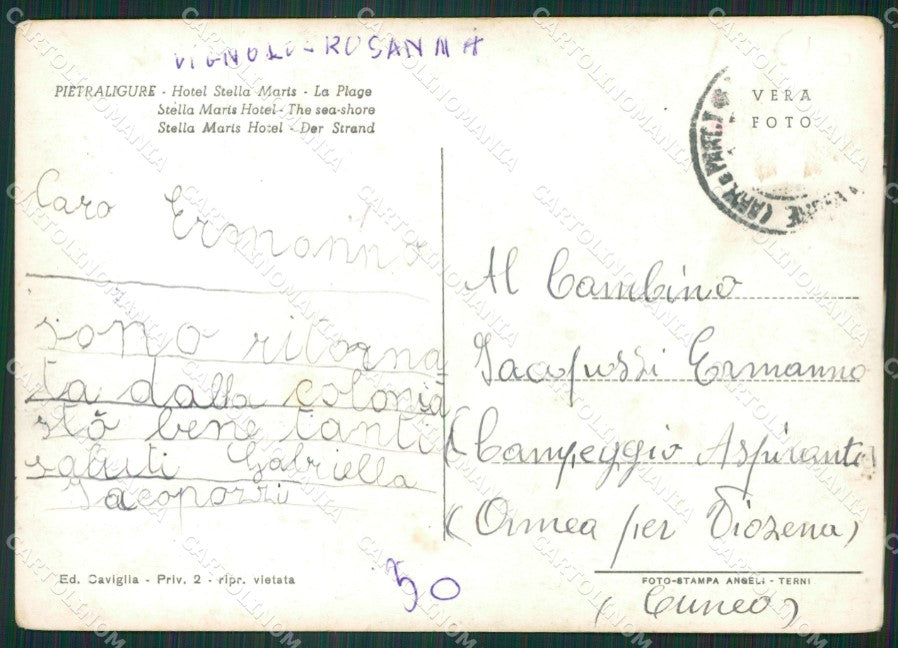 VIGNOLO-ROSANNA
PIETRALIGURE - Hotel Stella Maris - La Plage
Stella Maris Hotel - The sea-shore
Stella Maris Hotel - Der Strand
VERA
FOTO
Caro Ermanno
sono ritorna
ta dalla colonia
stò bene tanti
saluti Gabriella
Jacopozzi
Al Bambino
Jacopozzi Ermanno
(Campeggio Aspiranti)
(Ormea per Viozena)
(Cuneo)
50
Ed. Caviglia - Priv. 2 - ripr. vietata
FOTO-STAMPA ANGELI - TERNI
CARTOLINOMANIA